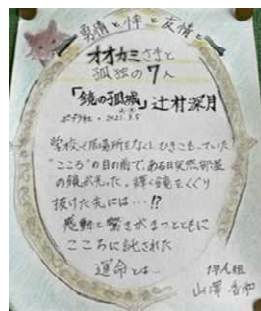 勇情と絆と友情と
オオカミさまと
孤独の7人
「鏡の孤城」辻村深月
ポプラ社・2021.3.5
学校で居場所をなくし、ひきこもっていた
"こころ"の目の前で、ある日突然部屋
の鏡が光った。輝く鏡をくぐり
抜けた先には…!?
感動と驚きがまつとともに
こころに託された
運命とは…
山澤